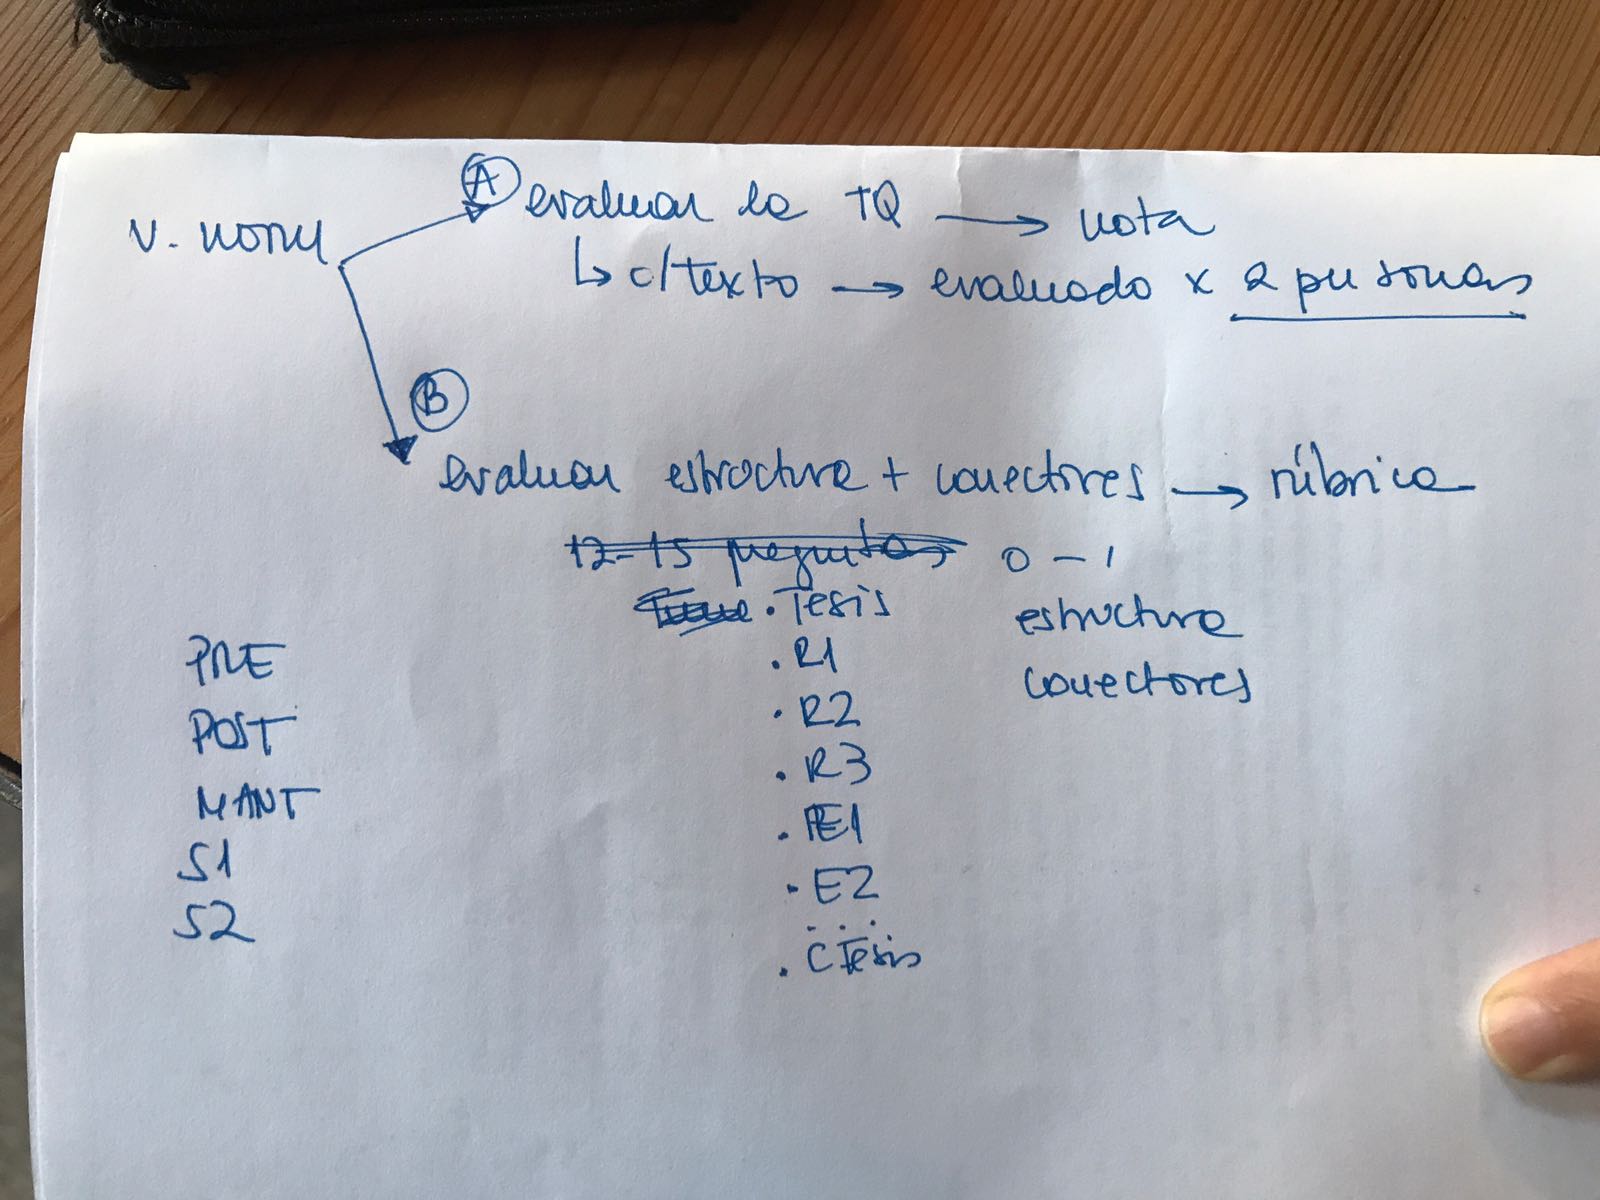 A evaluar la TQ → nota
↳ c/texto → evaluado x 2 personas
B
evaluar estructura + conectores → rúbrica
12-15 preguntas 0 - 1
. Tesis estructura
. R1 conectores
. R2
. R3
. E1
. E2
. . .
. CTesis
PRE
POST
MANT
S1
S2